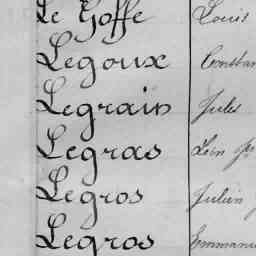 Le Goffe Louis
Legoux Constan
Legrain Jules
Legras Léon
Legros Julien
Legros Emmanu